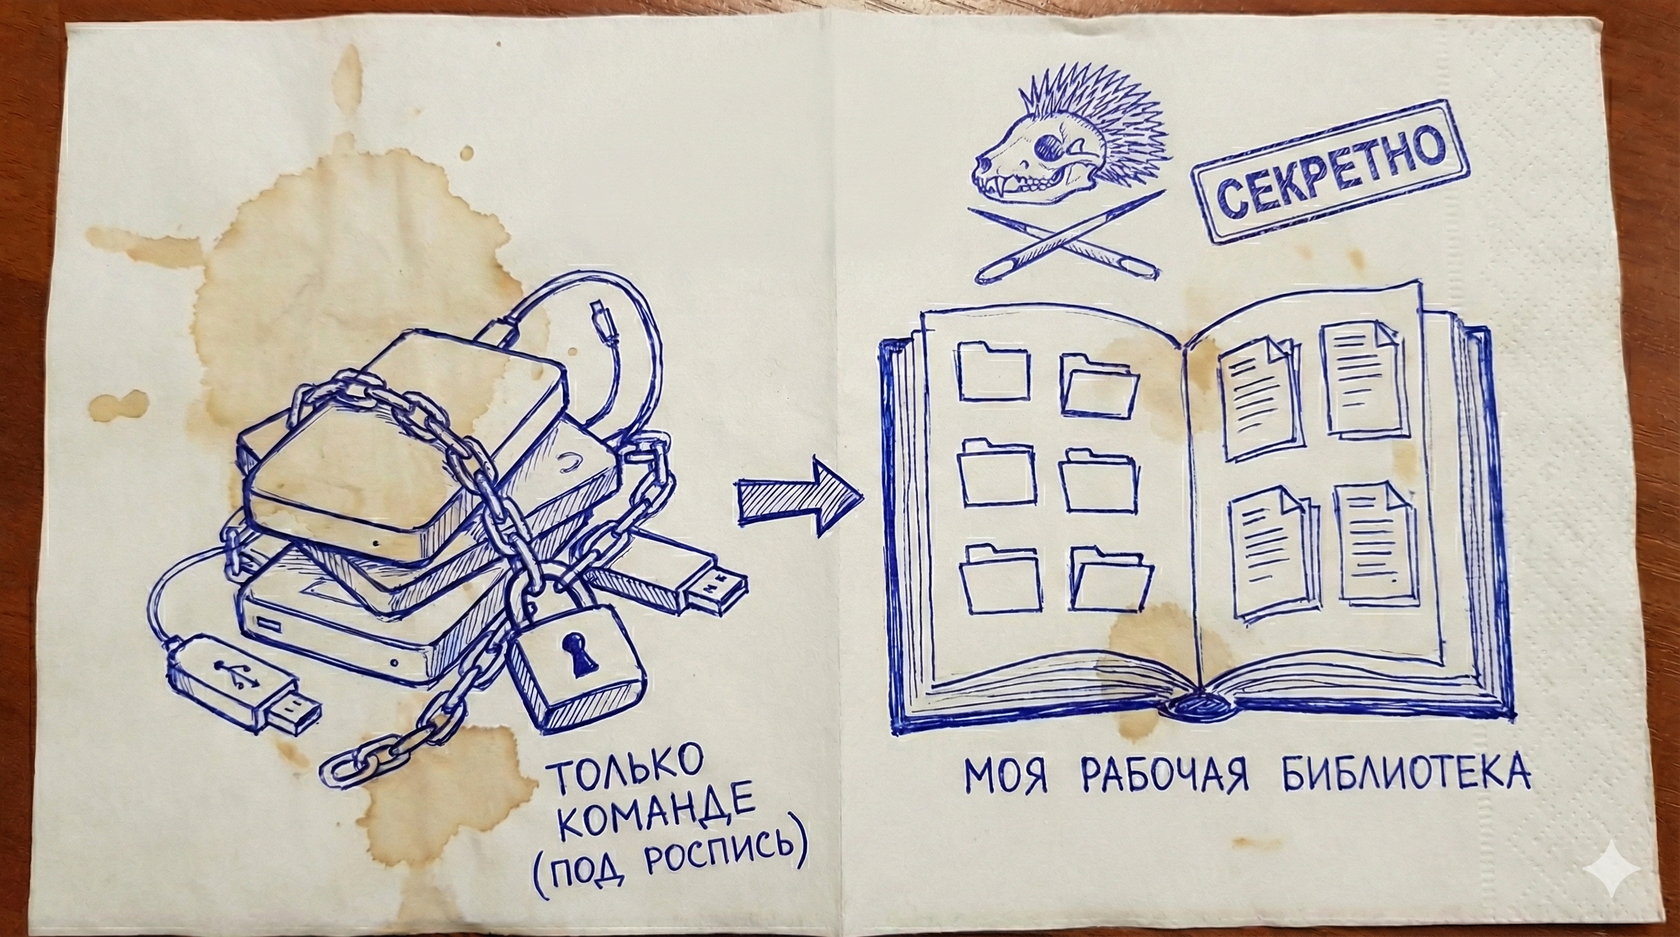 СЕКРЕТНО
ТОЛЬКО
КОМАНДЕ
(ПОД РОСПИСЬ)
МОЯ РАБОЧАЯ БИБЛИОТЕКА